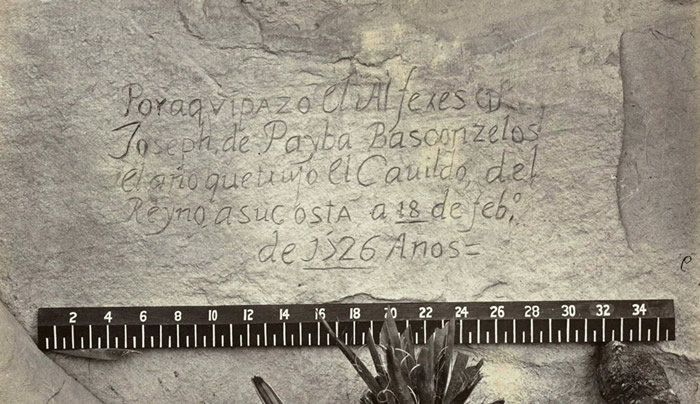 Por aqvi pazo el Alferes Dn
Joseph de Payba Basconzelos
el año que trujo el Cauildo del
Reyno a su costa a 18 de febo
de 1526 Anos=
2 4 6 8 10 12 14 16 18 20 22 24 26 28 30 32 34